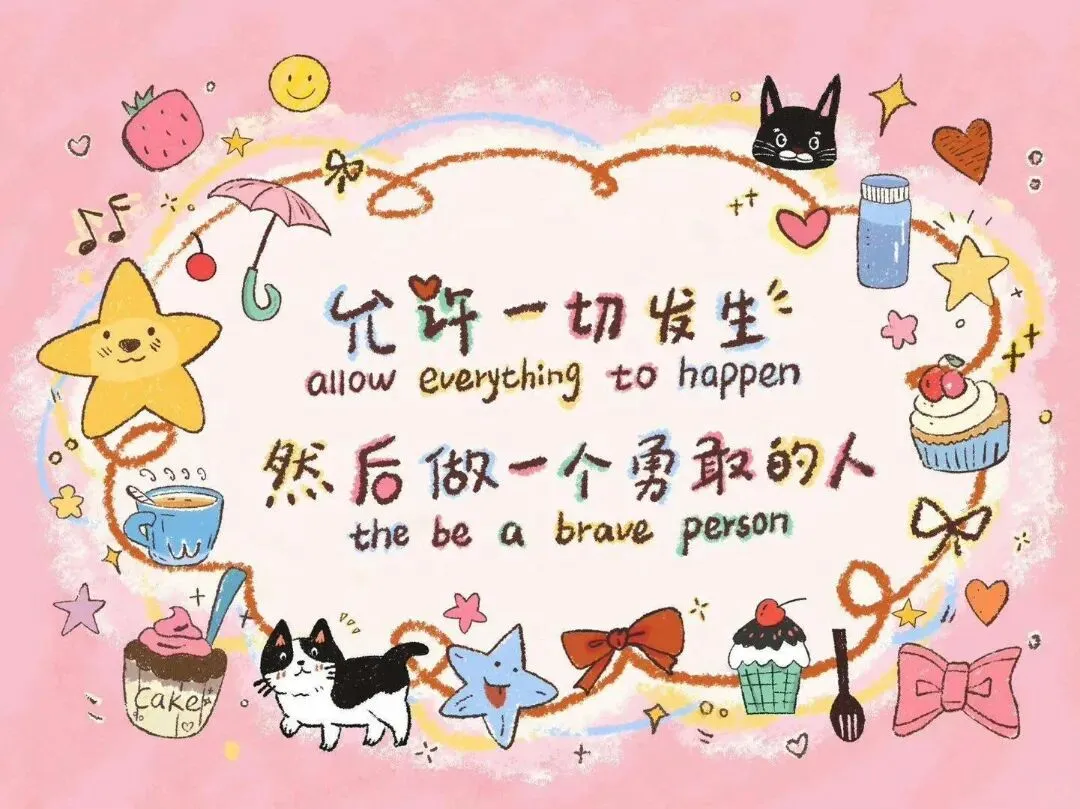 允许一切发生
allow everything to happen
然后做一个勇敢的人
the be a brave person
Cake